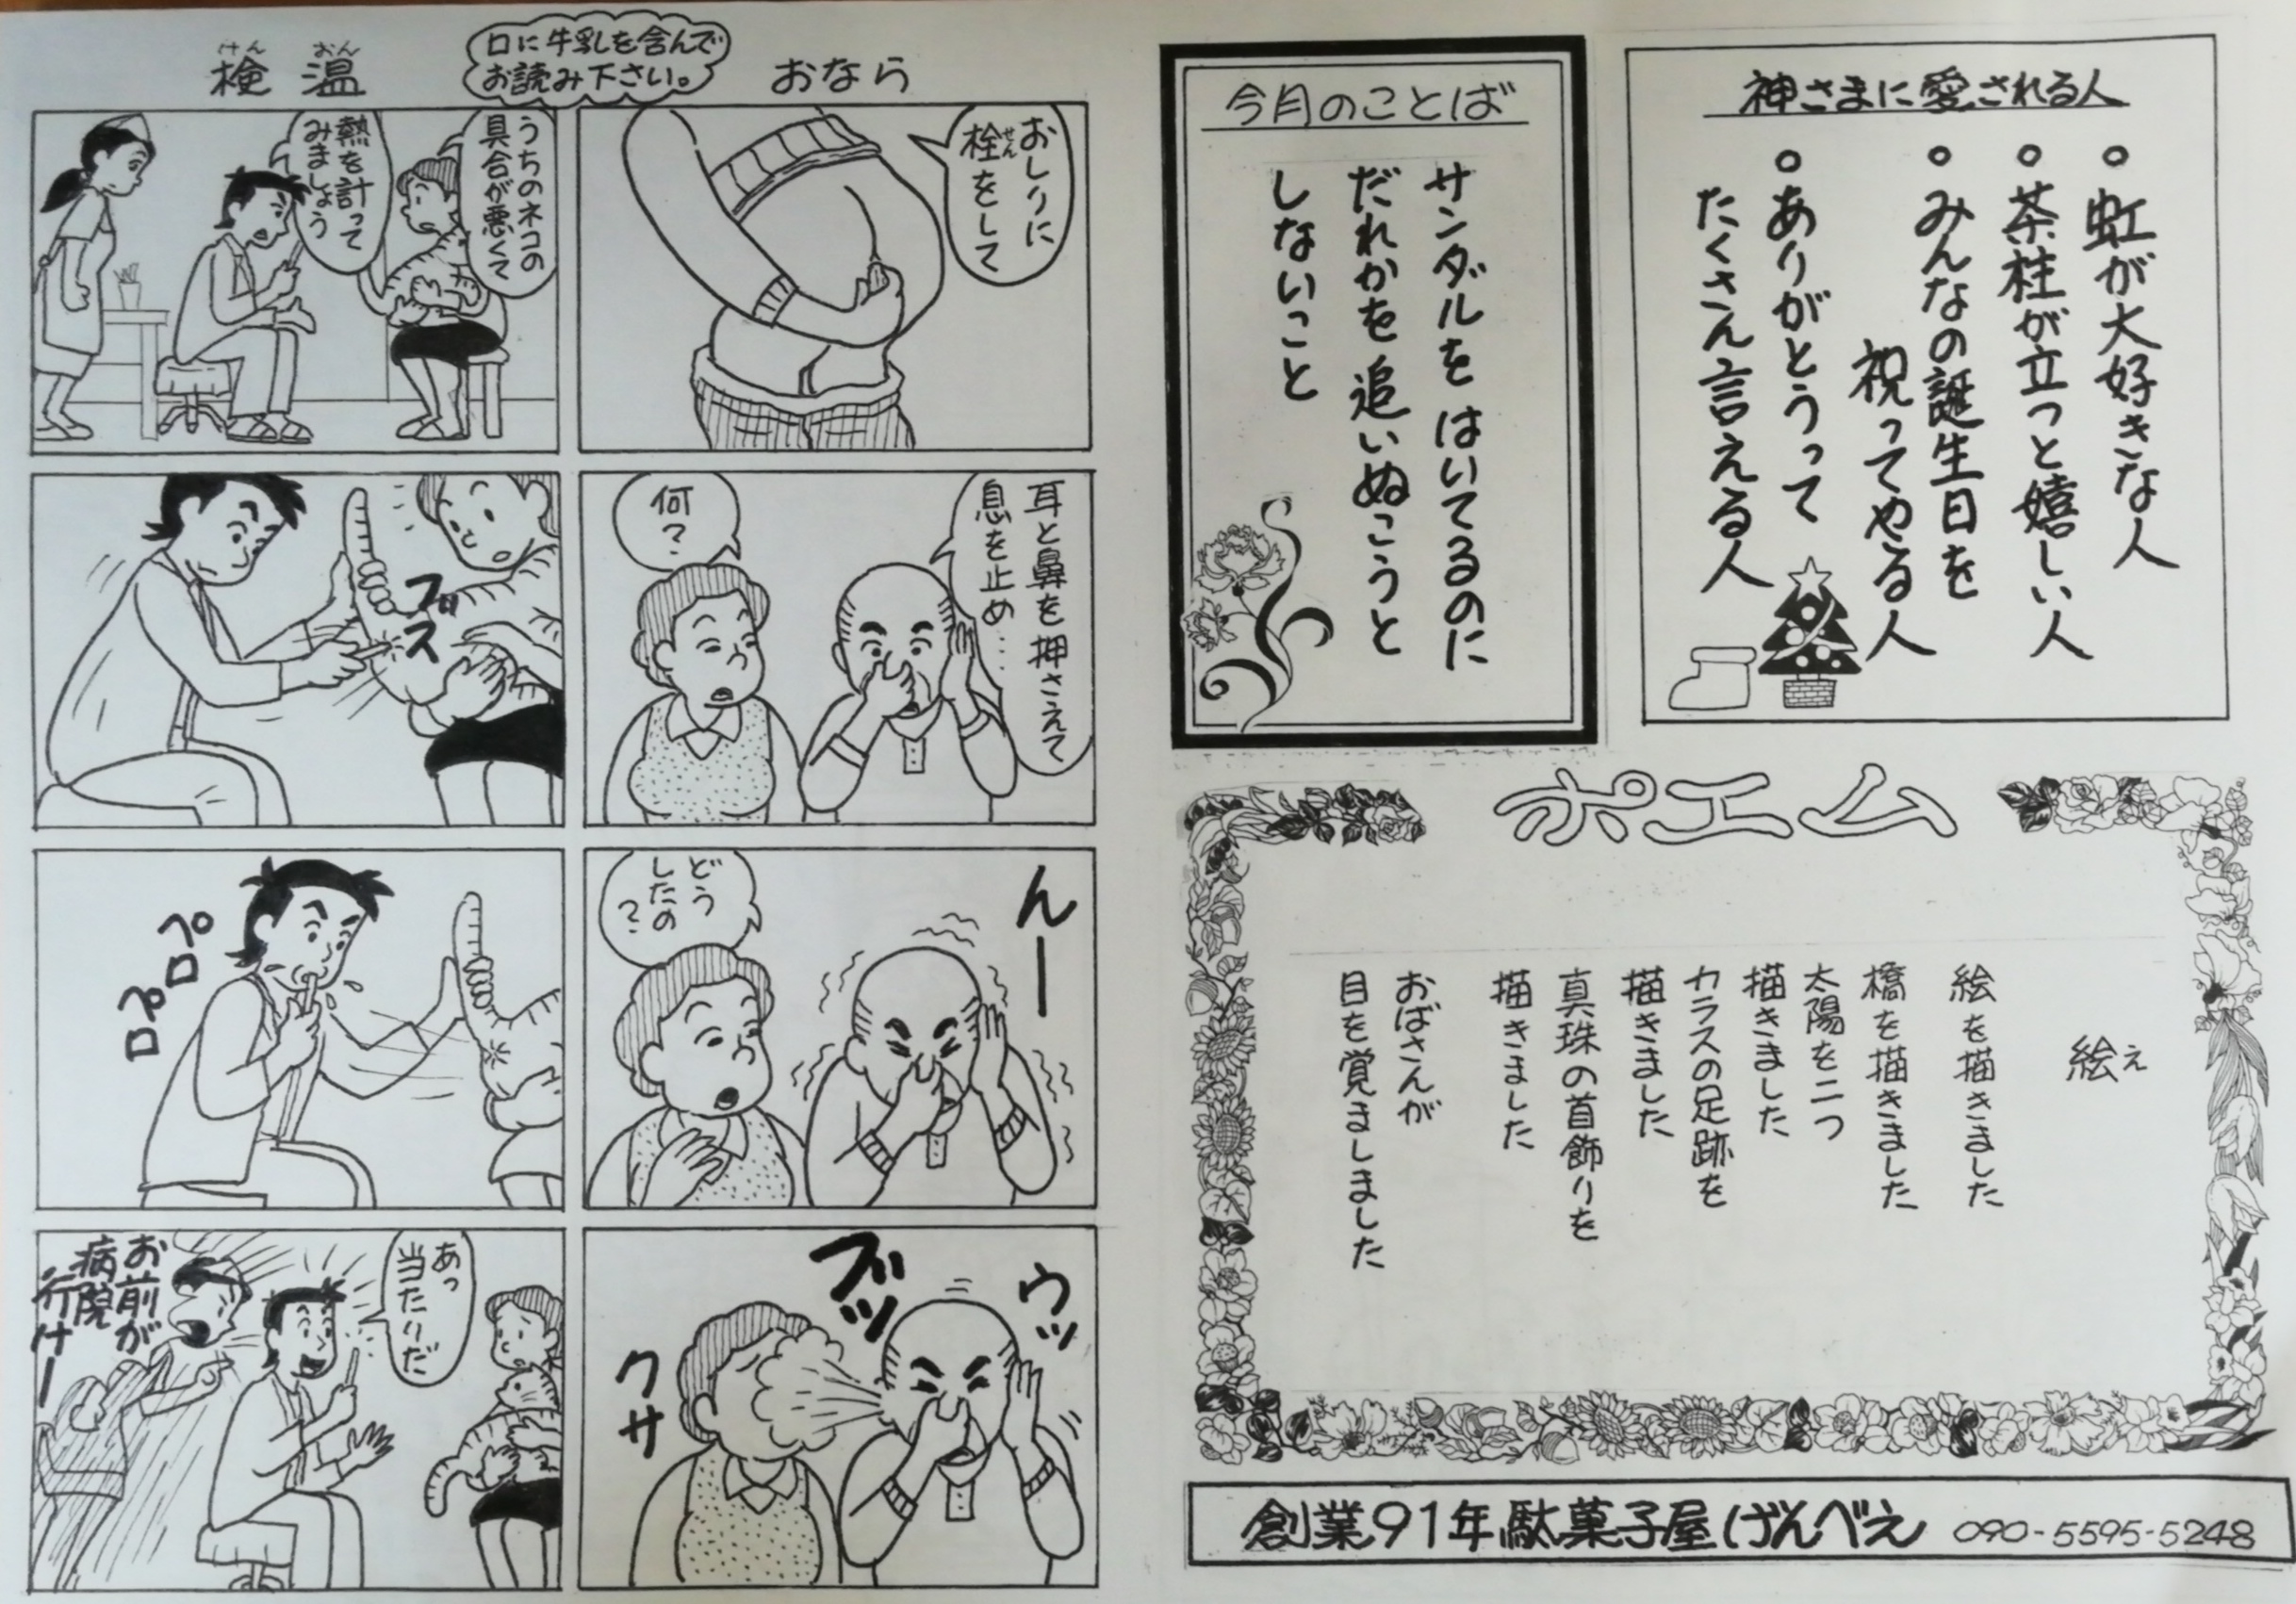 神さまに愛される人
○虹が大好きな人
○茶柱が立つと嬉しい人
○みんなの誕生日を
祝ってやる人
○ありがとうって
たくさん言える人
今月のことば
サンダルをはいてるのに
だれかを追いぬこうと
しないこと
口に牛乳を含んで
お読み下さい。
おなら
おしりに
栓せんをして
耳と鼻を押さえて
息を止め…
何?
んー
どう
したの
?
ウッ
ブッ
クサ
検けん温おん
うちのネコの
具合が悪くて
熱を計って
みましょう
ブス
ペロペロ
あっ
当たりだ
お前が
病院
行けー
ポエム
絵え
絵を描きました
橋を描きました
太陽を二つ
描きました
カラスの足跡を
描きました
真珠の首飾りを
描きました
おばさんが
目を覚ましました
創業91年駄菓子屋げんべえ 090-5595-5248